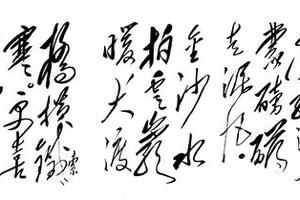 蒙磅礴
走泥丸。
金沙水
拍雲崖
暖大渡
橋横鐵索
寒。更喜